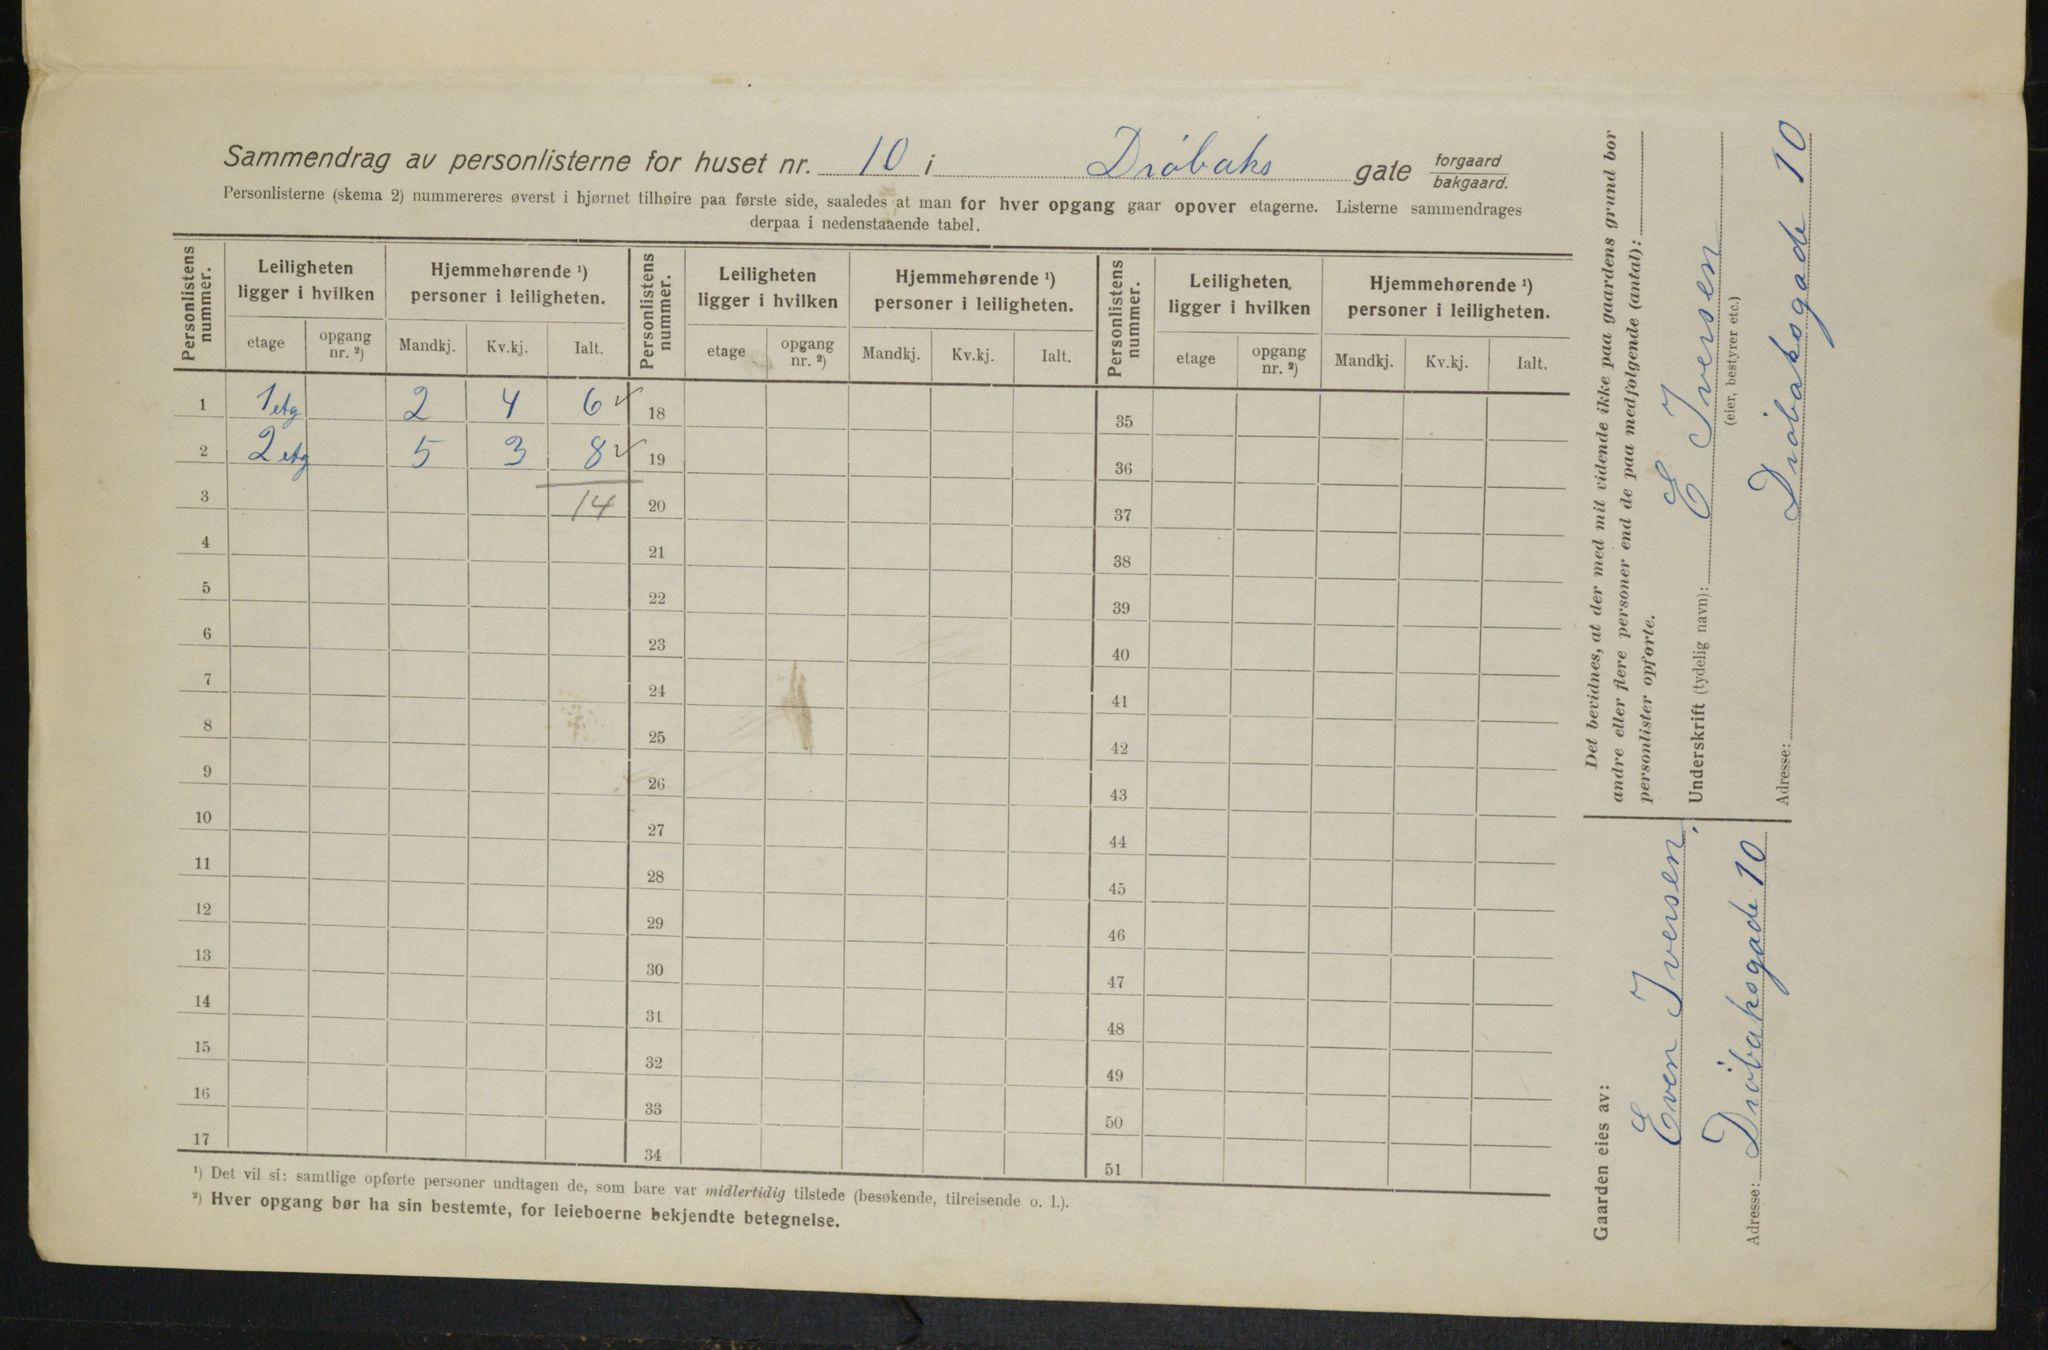 Sammendrag av personlisterne for huset nr. 10 i Drøbaks gate forgaard
bakgaard.
Personlisterne (skema 2) nummereres øverst i hjørnet tilhøire paa første side, saaledes at man for hver opgang gaar opover etagerne. Listerne sammendrages
derpaa i nedenstaaende tabel.
Personlistens nummer. Leiligheten ligger i hvilken Hjemmehørende ¹) personer i leiligheten. Personlistens nummer. Leiligheten ligger i hvilken Hjemmehørende ¹) personer i leiligheten. Personlistens nummer. Leiligheten ligger i hvilken Hjemmehørende ¹) personer i leiligheten.
etage opgang nr. ²) Mandkj. Kv.kj. Ialt. etage opgang nr. ²) Mandkj. Kv.kj. Ialt. etage opgang nr. ²) Mandkj. Kv.kj. Ialt.
1 1 etg 2 4 6 ✓ 18 35
2 2 etg 5 3 8 ✓ 19 36
3 14 20 37
4 21 38
5 22 39
6 23 40
7 24 41
8 25 42
9 26 43
10 27 44
11 28 45
12 29 46
13 30 47
14 31 48
15 32 49
16 33 50
17 34 51
¹) Det vil si: samtlige opførte personer undtagen de, som bare var midlertidig tilstede (besøkende, tilreisende o. l.).
²) Hver opgang bør ha sin bestemte, for leieboerne bekjendte betegnelse.
Det bevidnes, at der med mit vidende ikke paa gaardens grund bor
andre eller flere personer end de paa medfølgende (antal):
personlister opførte.
Underskrift (tydelig navn): E Iversen
(eier, bestyrer etc.)
Adresse: Drøbaksgade 10
Gaarden eies av:
Even Iversen,
Adresse: Drøbaksgade 10